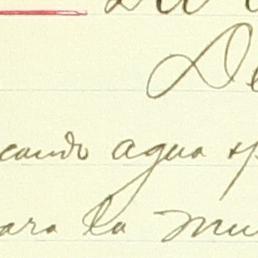 De
cando agua sp
ara la mu